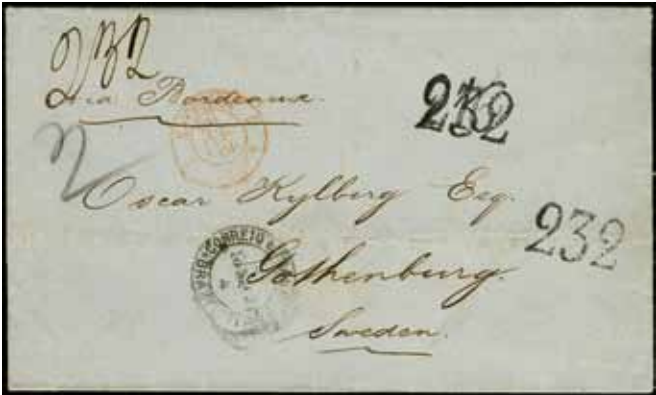 232
Via Bordeaux.
232
2
Oscar Kylberg Esq.
232
CORREIO
Gothenburg.
Sweden.